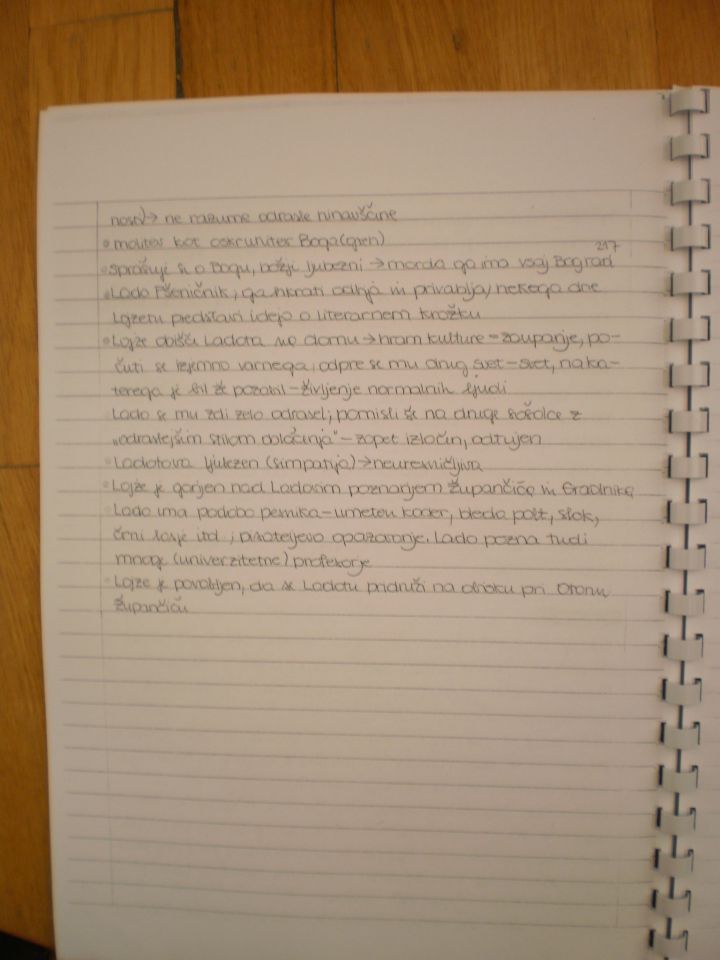 nost)→ ne razume odrasle hinavščine
• molitev kot oskrunitev Boga (gren)
217
• sprašuje se o Bogu, božji ljubezni → morda ga ima vsaj Bog rad
• Lado Pšeničnik, ga hkrati odbija in privablja, nekega dne
Lojzetu predstavi idejo o literarnem krožku
• Lojze obišče Ladota na domu → hram kulture = zaupanje, po-
čuti se izjemno varnega, odpre se mu drug svet – svet, na ka-
terega je bil že pozabil – življenje normalnih ljudi
Lado se mu zdi zelo odrasel; pomisli še na druge sošolce z
„odraslejšim stilom oblačenja" – zopet izločin, odtujen
• Ladotova ljubezen (simpatija) → neuresničljiva
• Lojze je gorjen nad Ladovim poznanjem Župančiča in Gradnika
• Lado ima podobo pesnika – umeten koder, bleda polt, slok,
črni lasje itd.; pisateljevo opazovanje. Lado pozna tudi
mnoge (univerzitetne) profesorje
• Lojze je povabljen, da se Ladotu pridruži na obisku pri Otonu
Župančiču